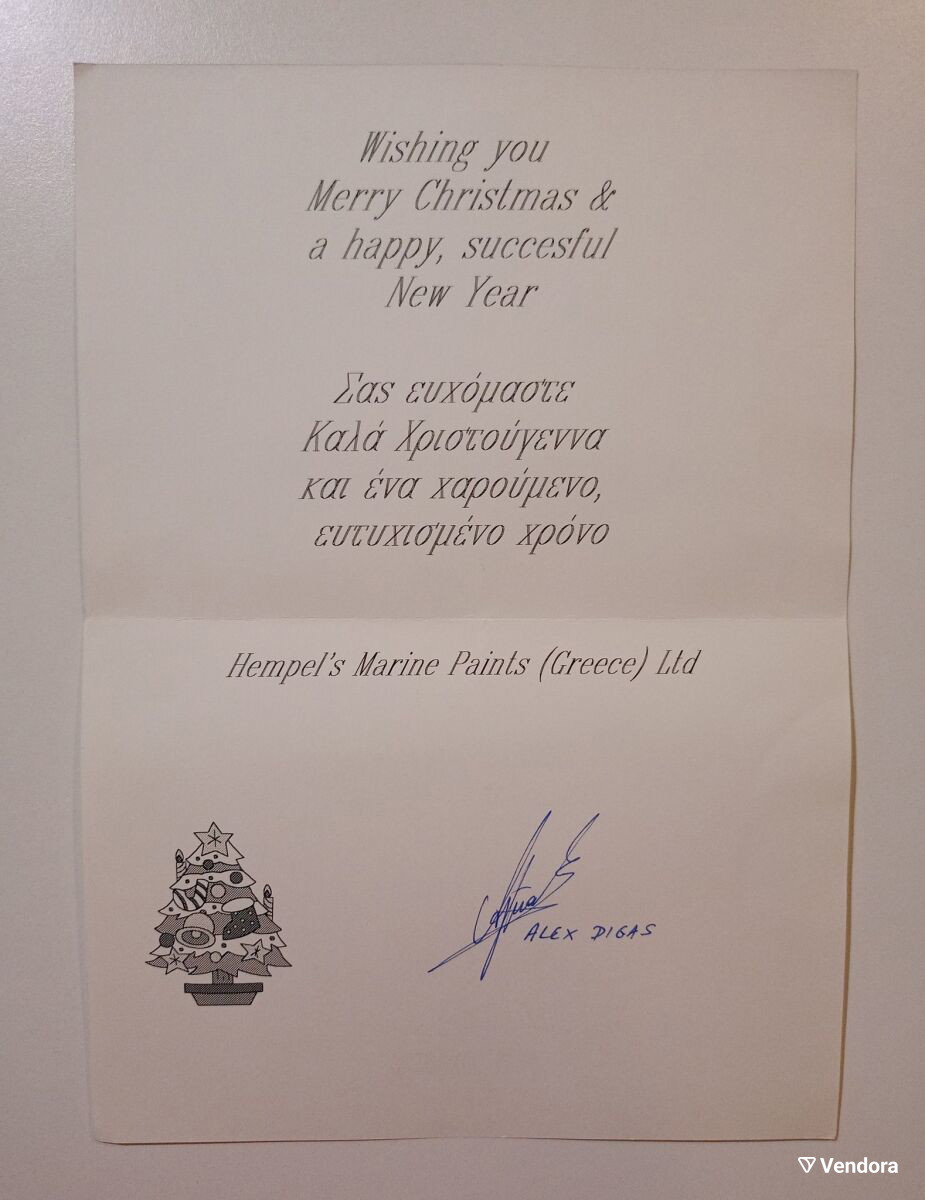 Wishing you
Merry Christmas &
a happy, succesful
New Year
Σας ευχόμαστε
Καλά Χριστούγεννα
και ένα χαρούμενο,
ευτυχισμένο χρόνο
Hempel's Marine Paints (Greece) Ltd
ALEX DIGAS
Vendora